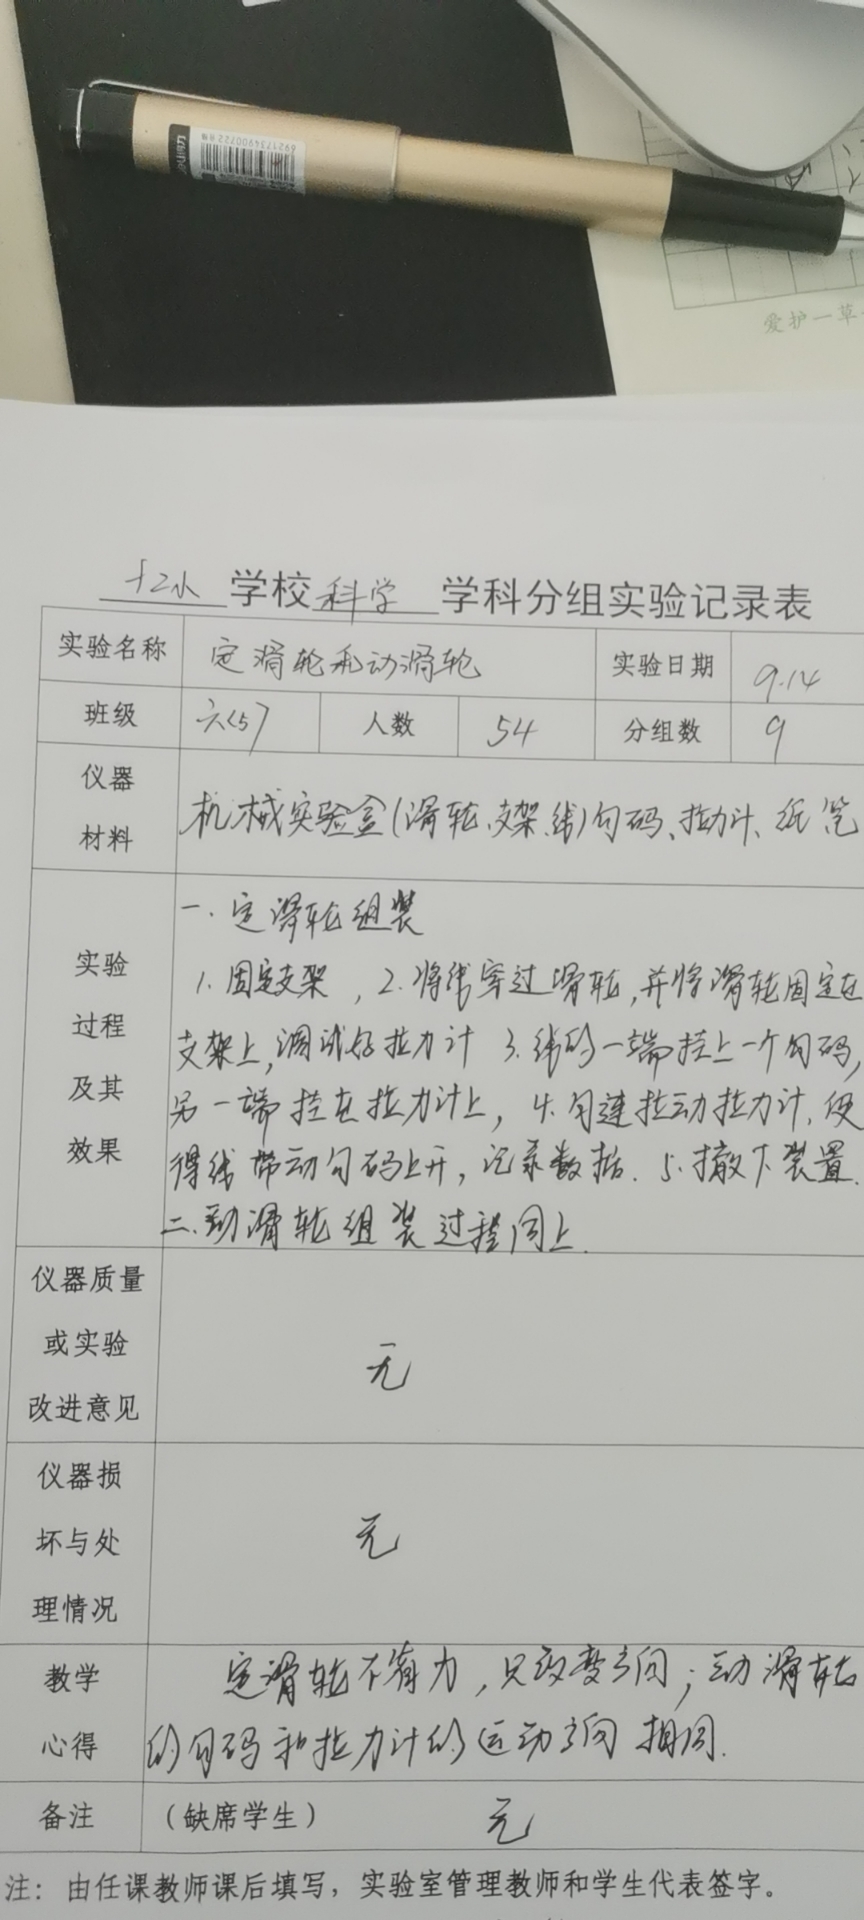 6921734900722
爱护一草
十二小 学校 科学 学科分组实验记录表
实验名称 定滑轮和动滑轮 实验日期 9.14
班级 六(5) 人数 54 分组数 9
仪器材料 机械实验盒(滑轮、支架、线)勾码、拉力计、纸笔
实验过程及其效果 一、定滑轮组装
1. 固定支架, 2. 将线穿过滑轮,并将滑轮固定在
支架上,调试好拉力计 3. 线的一端挂上一个勾码,
另一端挂在拉力计上, 4. 匀速拉动拉力计,使
得线带动勾码上升,记录数据. 5. 撤下装置.
二、动滑轮组装过程同上.
仪器质量或实验改进意见 无
仪器损坏与处理情况 无
教学心得 定滑轮不省力,只改变方向;动滑轮
的勾码和拉力计的运动方向相同.
备注 (缺席学生) 无
注:由任课教师课后填写,实验室管理教师和学生代表签字。